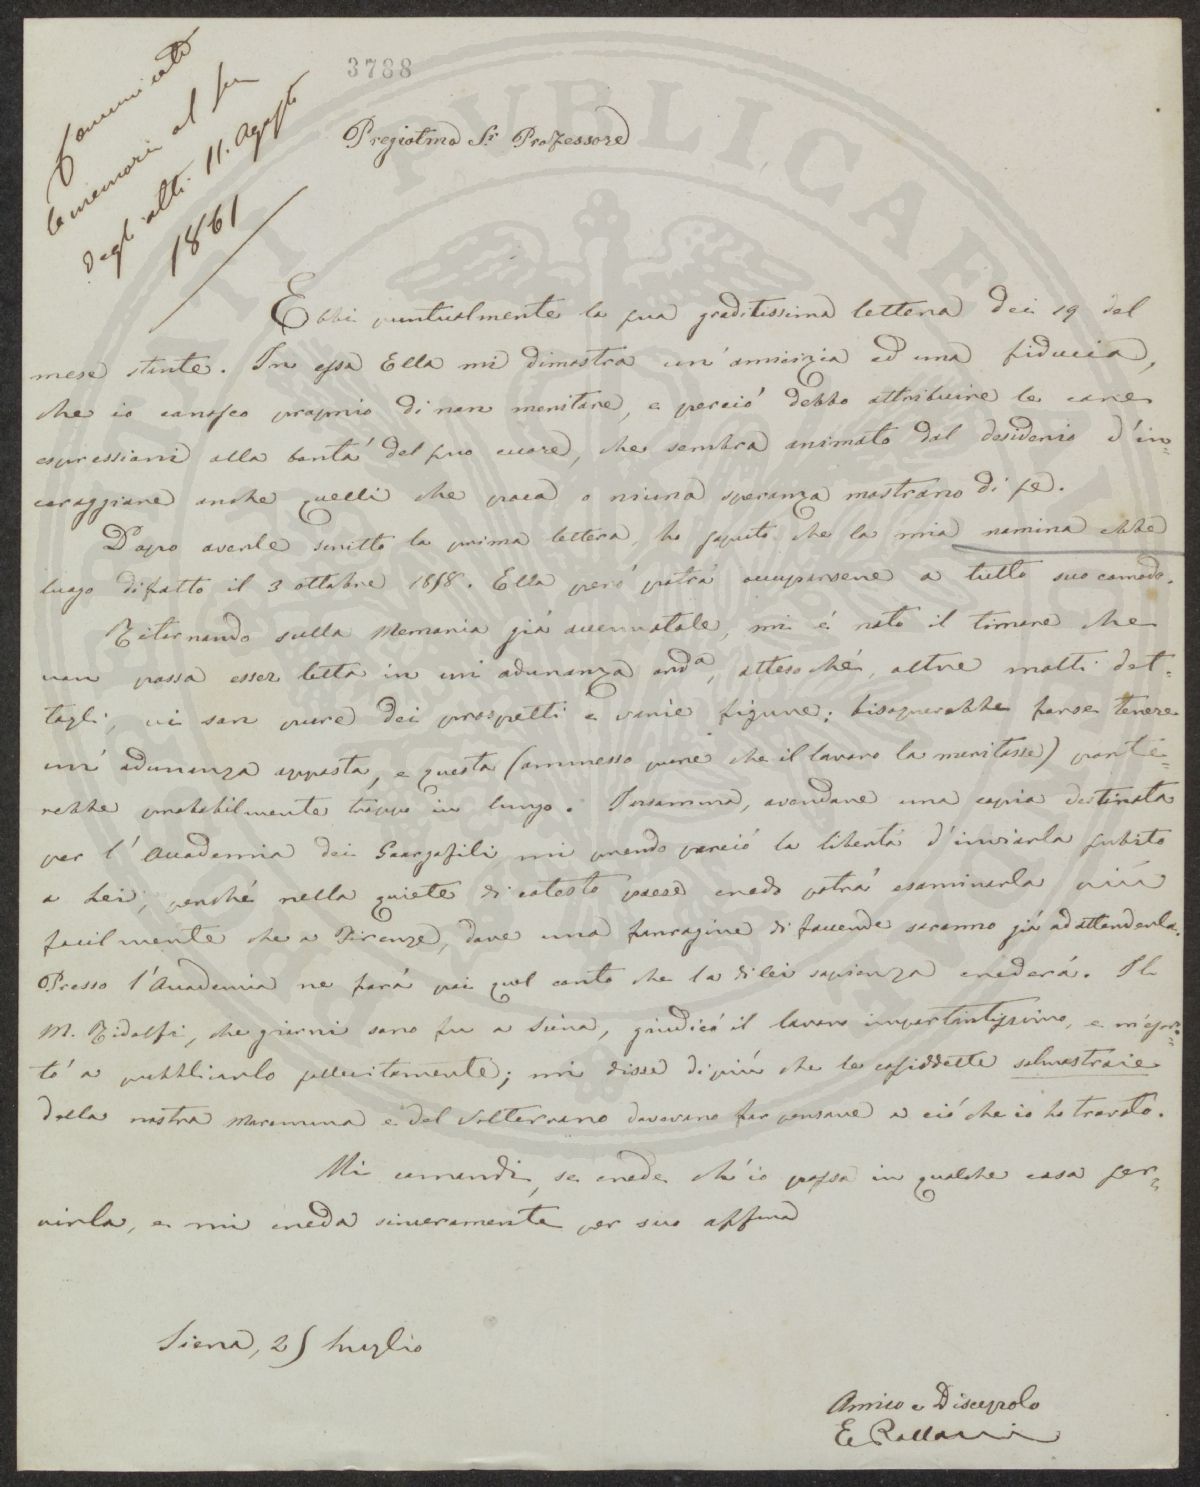 3788
Comunicata
la memoria al
degli atti 11. Agosto
1861
Pregiatmo Sr. Professore
Ebbi puntualmente la sua graditissima lettera dei 19 del
mese stante. In essa Ella mi dimostra un'amicizia ed una fiducia,
che io conosco proprio di non meritare, e perciò debbo attribuire le care
espressioni alla bontà del suo cuore, che sembra animato dal desiderio d'in=
coraggiare anche quelli che poca o niuna speranza mostrano di se.
Dopo averle scritto la prima lettera, ho saputo che la mia nomina ebbe
luogo difatto il 3 ottobre 1858. Ella però potrà occuparsene a tutto suo comodo.
Ritornando sulla Memoria già accennatale, mi è nato il timore che
non possa esser letta in un adunanza orda, attesoché, oltre molti det=
tagli, vi son pure dei prospetti e varie figure; bisognerebbe forse tenere
un'adunanza apposta, e questa (ammesso pure che il lavoro la meritasse) porte=
rebbe probabilmente troppo in lungo. Insomma, avendone una copia destinata
per l'Accademia dei Georgofili mi prendo perciò la libertà d'inviarla subito
a Lei, perché nella quiete di cotesto paese credo potrà esaminarla più
facilmente che a Firenze, dove una farragine di faccende saranno già ad attenderla.
Presso l'Accademia ne farà poi quel conto che la di lei sapienza crederà. Il
M. Ridolfi, che giorni sono fu a Siena, giudicò il lavoro importantissimo, e m'esor=
tò a pubblicarlo sollecitamente; mi disse di più che le cosiddette salmastraie
della nostra Maremma e del Volterrano dovevano far pensare a ciò che io ho trovato.
Mi comandi, se crede ch'io possa in qualche cosa ser=
virla, e mi creda sinceramente per suo affmo
Siena, 25 Luglio
Amico e Discepolo